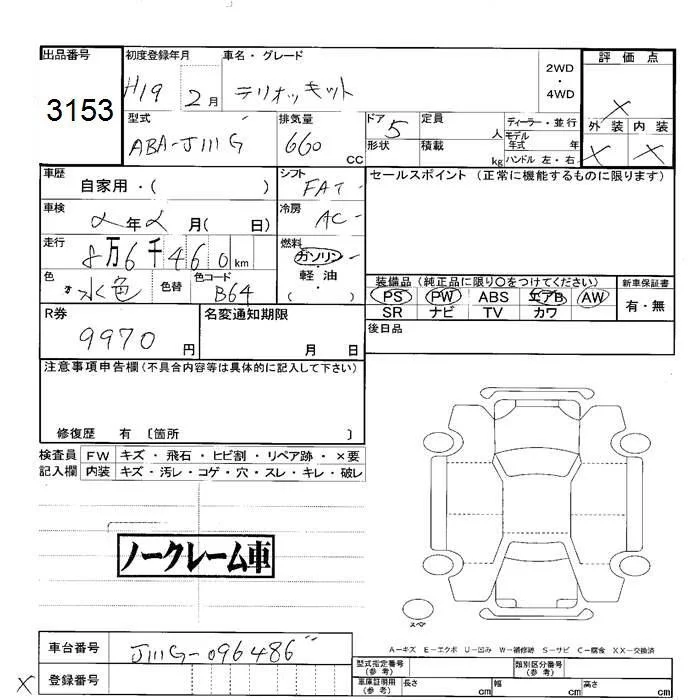 出品番号
3153
初度登録年月
H19 2月
車名・グレード
テリオスキッド
2WD
・
4WD
評価点
X
外装 内装
X X
型式
ABA-J111G
排気量
660 cc
ドア 5
形状
定員 人
積載 kg
ディーラー・並行
モデル年式 年
ハンドル 左・右
車歴
自家用・( )
シフト
FAT
セールスポイント (正常に機能するものに限ります)
車検
年 月( 日)
冷房
AC
走行
8万6千460km
燃料
ガソリン
・
軽油
( )
色
水色
色替
色コード
B64
装備品(純正品に限り〇をつけてください)
PS PW ABS エアB AW
SR ナビ TV カワ
新車保証書
有・無
R券
9970円
名変通知期限
月 日
後日品
注意事項申告欄(不具合内容等は具体的に記入して下さい)
修復歴 有 〔箇所 〕
検査員記入欄
FW キズ・飛石・ヒビ割・リペア跡・×要
内装 キズ・汚レ・コゲ・穴・スレ・キレ・破レ
ノークレーム車
スペア
A－キズ E－エクボ U－凹み W－補修跡 S－サビ C－腐食 XX－交換済
車台番号
J111G-096486
X 登録番号
型式指定番号(参考)
類別区分番号(参考)
車庫証明用(参考) 長さ cm 幅 cm 高さ cm